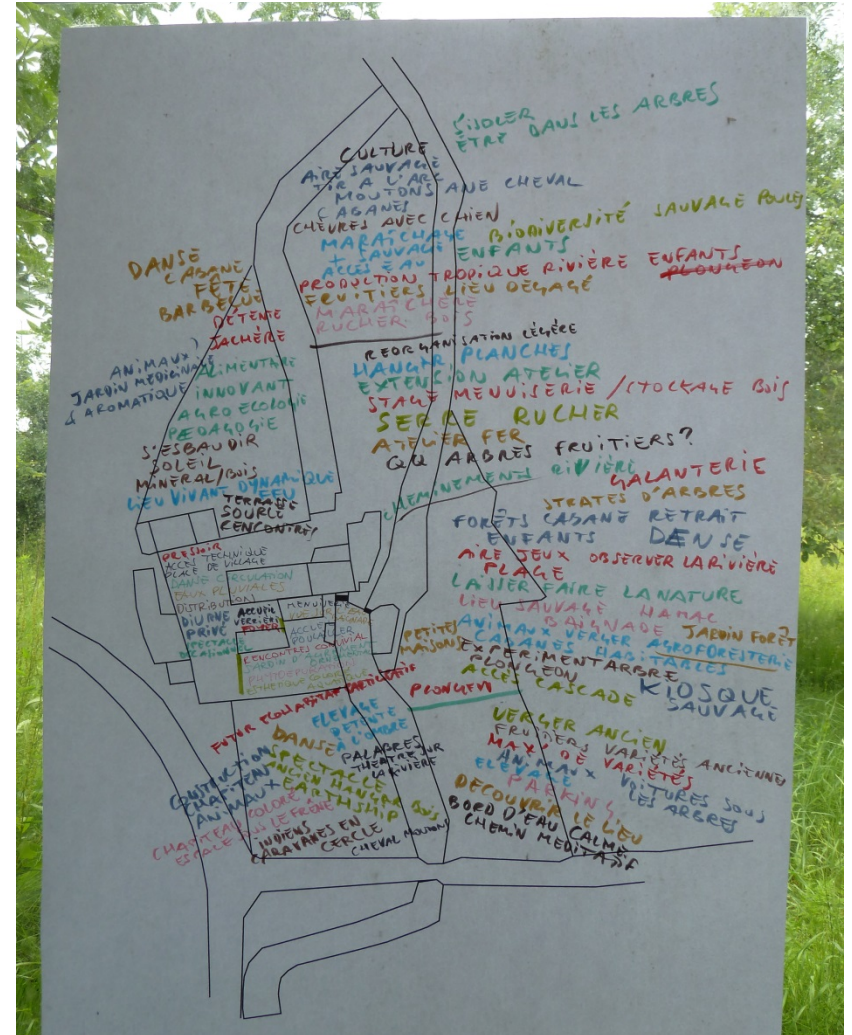 S'ISOLER
ÊTRE DANS LES ARBRES
CULTURE
AIRE SAUVAGE
TIR A L'ARC
MOUTONS ANE CHEVAL
CABANES
CHÈVRES AVEC CHIEN
BIODIVERSITÉ SAUVAGE POULES
MARAÎCHAGE
+ SAUVAGE ENFANTS
ACCES EAU
PRODUCTION TROPIQUE RIVIÈRE ENFANTS
PLONGEON
FRUITIERS LIEU DÉGAGÉ
MARAÎCHÈRE
RUCHER BOIS
DANSE
CABANE
FÊTE
BARBECUE
DÉTENTE
JACHÈRE
ANIMAUX
JARDIN MEDICINALE
& AROMATIQUE
ALIMENTAIRE
INNOVANT
AGRO ECOLOGIE
PÆDAGOGIE
S'ESBAUDIR
SOLEIL
MINÉRAL/BOIS
LIEU VIVANT DYNAMIQUE
FEU
TERRASSE
SOURCE
RENCONTRES
REORGANISATION LÉGÈRE
HANGER PLANCHES
EXTENSION ATELIER
STAGE MENUISERIE / STOCKAGE BOIS
SERRE RUCHER
ATELIER FER
QQ ARBRES FRUITIERS?
CHEMINEMENTS RIVIÈRE
GALANTERIE
STRATES D'ARBRES
FORÊTS CABANE RETRAIT
ENFANTS DENSE
AIRE JEUX OBSERVER LA RIVIÈRE
PLAGE
LAISSER FAIRE LA NATURE
LIEU SAUVAGE HAMAC
BAIGNADE JARDIN FORÊT
ANIMAUX VERGER AGROFORESTERIE
CABANES HABITABLES
EXPERIMENT ARBRE
PLONGEON
KIOSQUE
ACCÈS CASCADE
SAUVAGE
PRESSOIR
ACCÈS TECHNIQUE
PLACE DE VILLAGE
DANSE CIRCULATION
EAUX PLUVIALES
DISTRIBUTION
DIURNE
PRIVÉ
SPECTACLE
OCCASIONNEL
ACCUEIL
VERRIÈRE
FOYER
MENUISERIE
ACCÈS
POULAILLER
RENCONTRES CONVIVIAL
JARDIN D'AGRÉMENT
ORNEMENTAL
PHYTOEPURATION
ESTHETIQUE COLORÉ
AQUATIQUE
PETITES
MAISONS
PLONGEON
FUTUR ECOHABITAT PARTICIPATIF
ELEVAGE
DETENTE
A L'OMBRE
DANSE
PALABRES
SPECTACLE
THEATRE SUR
LA RIVIÈRE
ANCIEN HANGER BOIS
EARTHSHIP
COSTRUCTION
CHAPITEAU
ANIMAUX
CHAPITEAU COLORÉ
ESCALE SOUS LE FRÊNE
INDIENS
CARAVANES EN
CERCLE
CHEVAL MOUTONS
VERGER ANCIEN
FRUITIERS VARIÉTÉS ANCIENNE
MAXI DE VARIÉTÉS
ANIMAUX
ELEVAGE
VOITURES SOUS
LES ARBRES
PARKING
DECOUVRIR LE LIEU
BORD D'EAU CALME
CHEMIN MEDITATIF